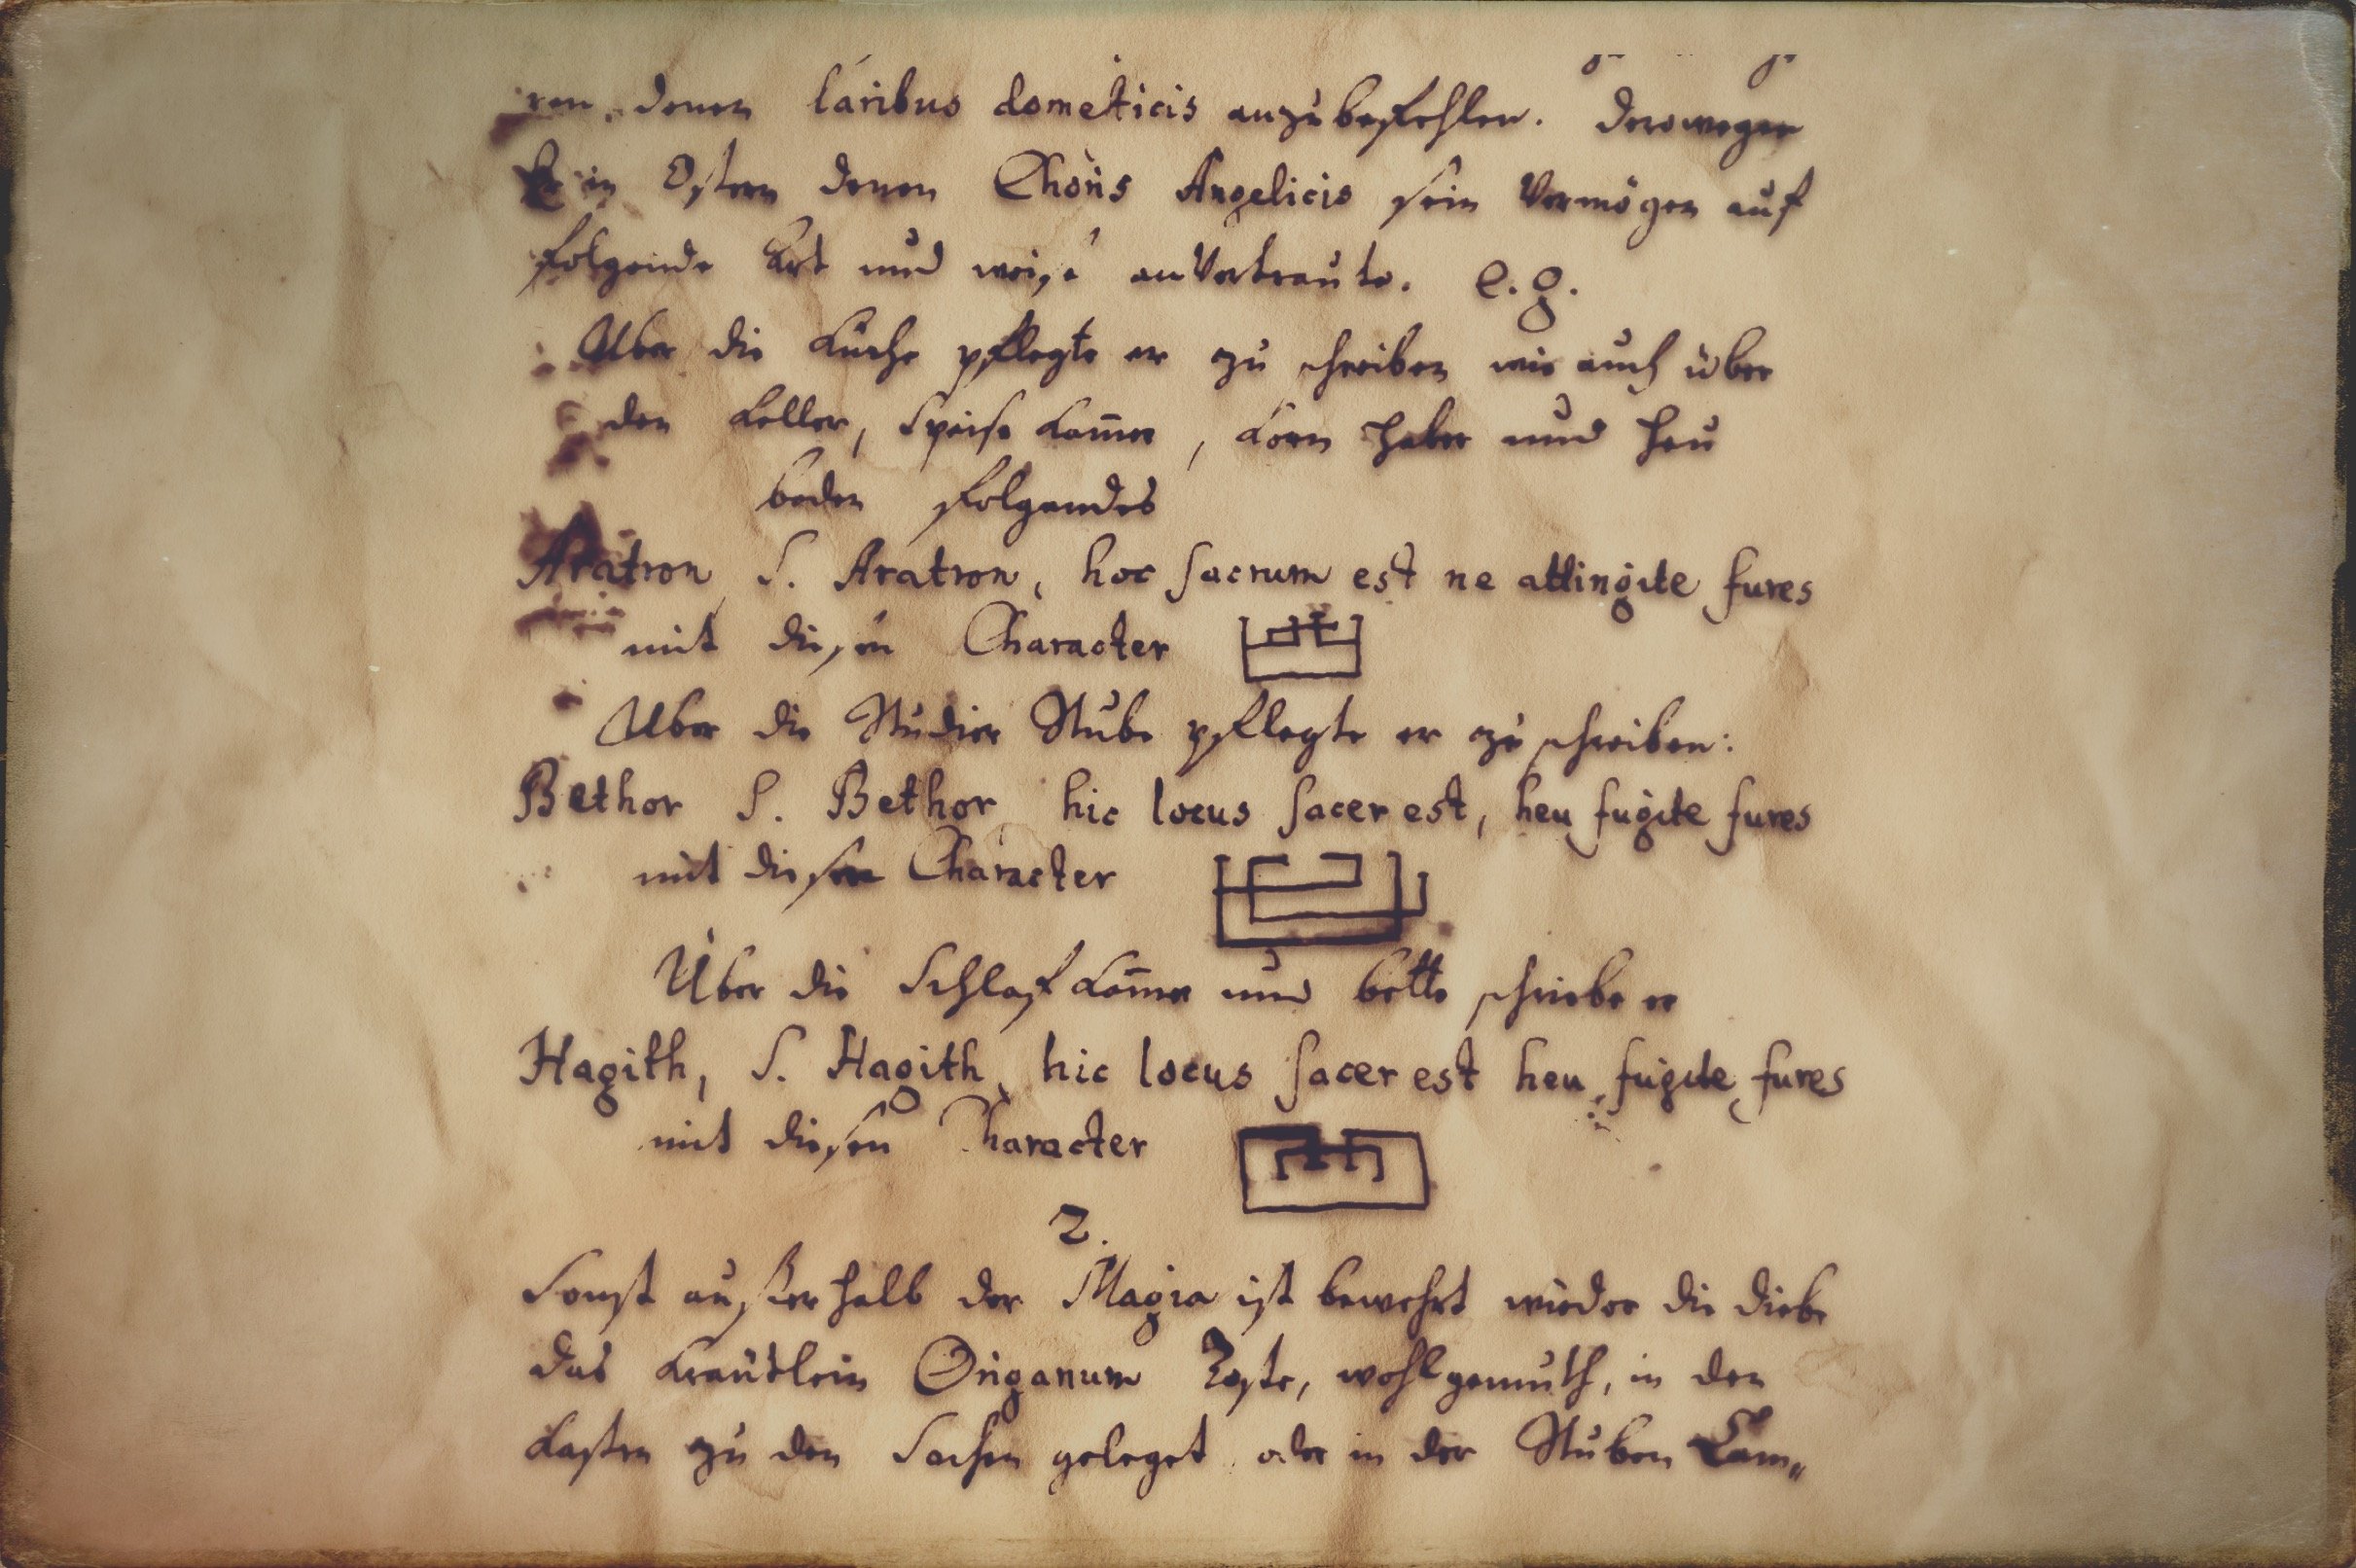 ren denen laribus domesticis anzubefehlen. Derowegen
Er in Ostern denen Choris Angelicis sein Vermögen auf
folgende Art und weise anVertraute. e.g.
Uber die Küche pflegte er zu schreiben wie auch über
den Keller, Speise Kam̄er, Korn Haber und Heu
boden folgendes
Aratron S. Aratron, hoc sacrum est ne attingite fures
mit diesen Character
Uber die Studier Stube pflegte er zu schreiben:
Bethor S. Bethor hic locus sacer est, heu fugite fures
mit diesen Character
Über die Schlaf Kam̄er und bette schriebe er
Hagith, S. Hagith, hic locus sacer est heu fugite fures
mit diesen Character
2.
Sonst außerhalb der Magia ist bewehrt wieder die diebe
das Kräutlein Origanum Doste, wohlgemuth, in den
Kasten zu den Sachen geleget oder in der Stuben Kam„